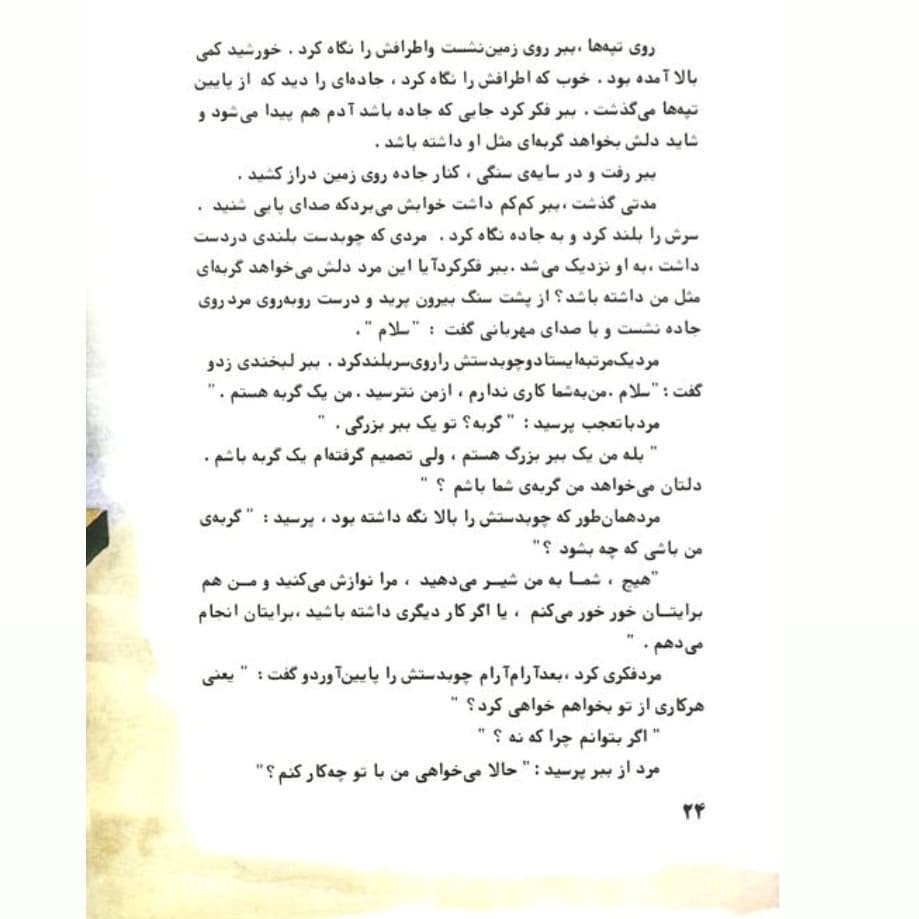 روی تپه‌ها ،ببر روی زمین‌نشست واطرافش را نگاه کرد . خورشید کمی
بالا آمده بود . خوب که اطرافش را نگاه کرد ، جاده‌ای را دید که از پایین
تپه‌ها می‌گذشت . ببر فکر کرد جایی که جاده باشد آدم هم پیدا می‌شود و
شاید دلش بخواهد گربه‌ای مثل او داشته باشد .
ببر رفت و در سایه‌ی سنگی ، کنار جاده روی زمین دراز کشید .
مدتی گذشت ،ببر کم‌کم داشت خوابش می‌برد‌که صدای پایی شنید .
سرش را بلند کرد و به جاده نگاه کرد . مردی که چوبدست بلندی دردست
داشت ،به او نزدیک می‌شد .ببر فکرکردآیا این مرد دلش می‌خواهد گربه‌ای
مثل من داشته باشد؟ از پشت سنگ بیرون پرید و درست روبه‌روی مرد روی
جاده نشست و با صدای مهربانی گفت : "سلام " .
مردیک‌مرتبه‌ایستادوچوبدستش راروی‌سربلندکرد . ببر لبخندی زدو
گفت : "سلام .من‌به‌شما کاری ندارم ، ازمن نترسید . من یک گربه هستم . "
مردباتعجب پرسید : " گربه؟ تو یک ببر بزرگی . "
" بله من یک ببر بزرگ هستم ، ولی تصمیم گرفته‌ام یک گربه باشم .
دلتان می‌خواهد من گربه‌ی شما باشم ؟ "
مردهمان‌طور که چوبدستش را بالا نگه داشته بود ، پرسید : " گربه‌ی
من باشی که چه بشود ؟"
"هیچ ، شما به من شیر می‌دهید ، مرا نوازش می‌کنید و من هم
برایتان خور خور می‌کنم ، یا اگر کار دیگری داشته باشید ،برایتان انجام
می‌دهم . "
مردفکری کرد ،بعدآرام‌آرام چوبدستش را پایین‌آوردو گفت : " یعنی
هرکاری از تو بخواهم خواهی کرد؟ "
" اگر بتوانم چرا که نه ؟ "
مرد از ببر پرسید : " حالا می‌خواهی من با تو چه‌کار کنم ؟"
۲۴